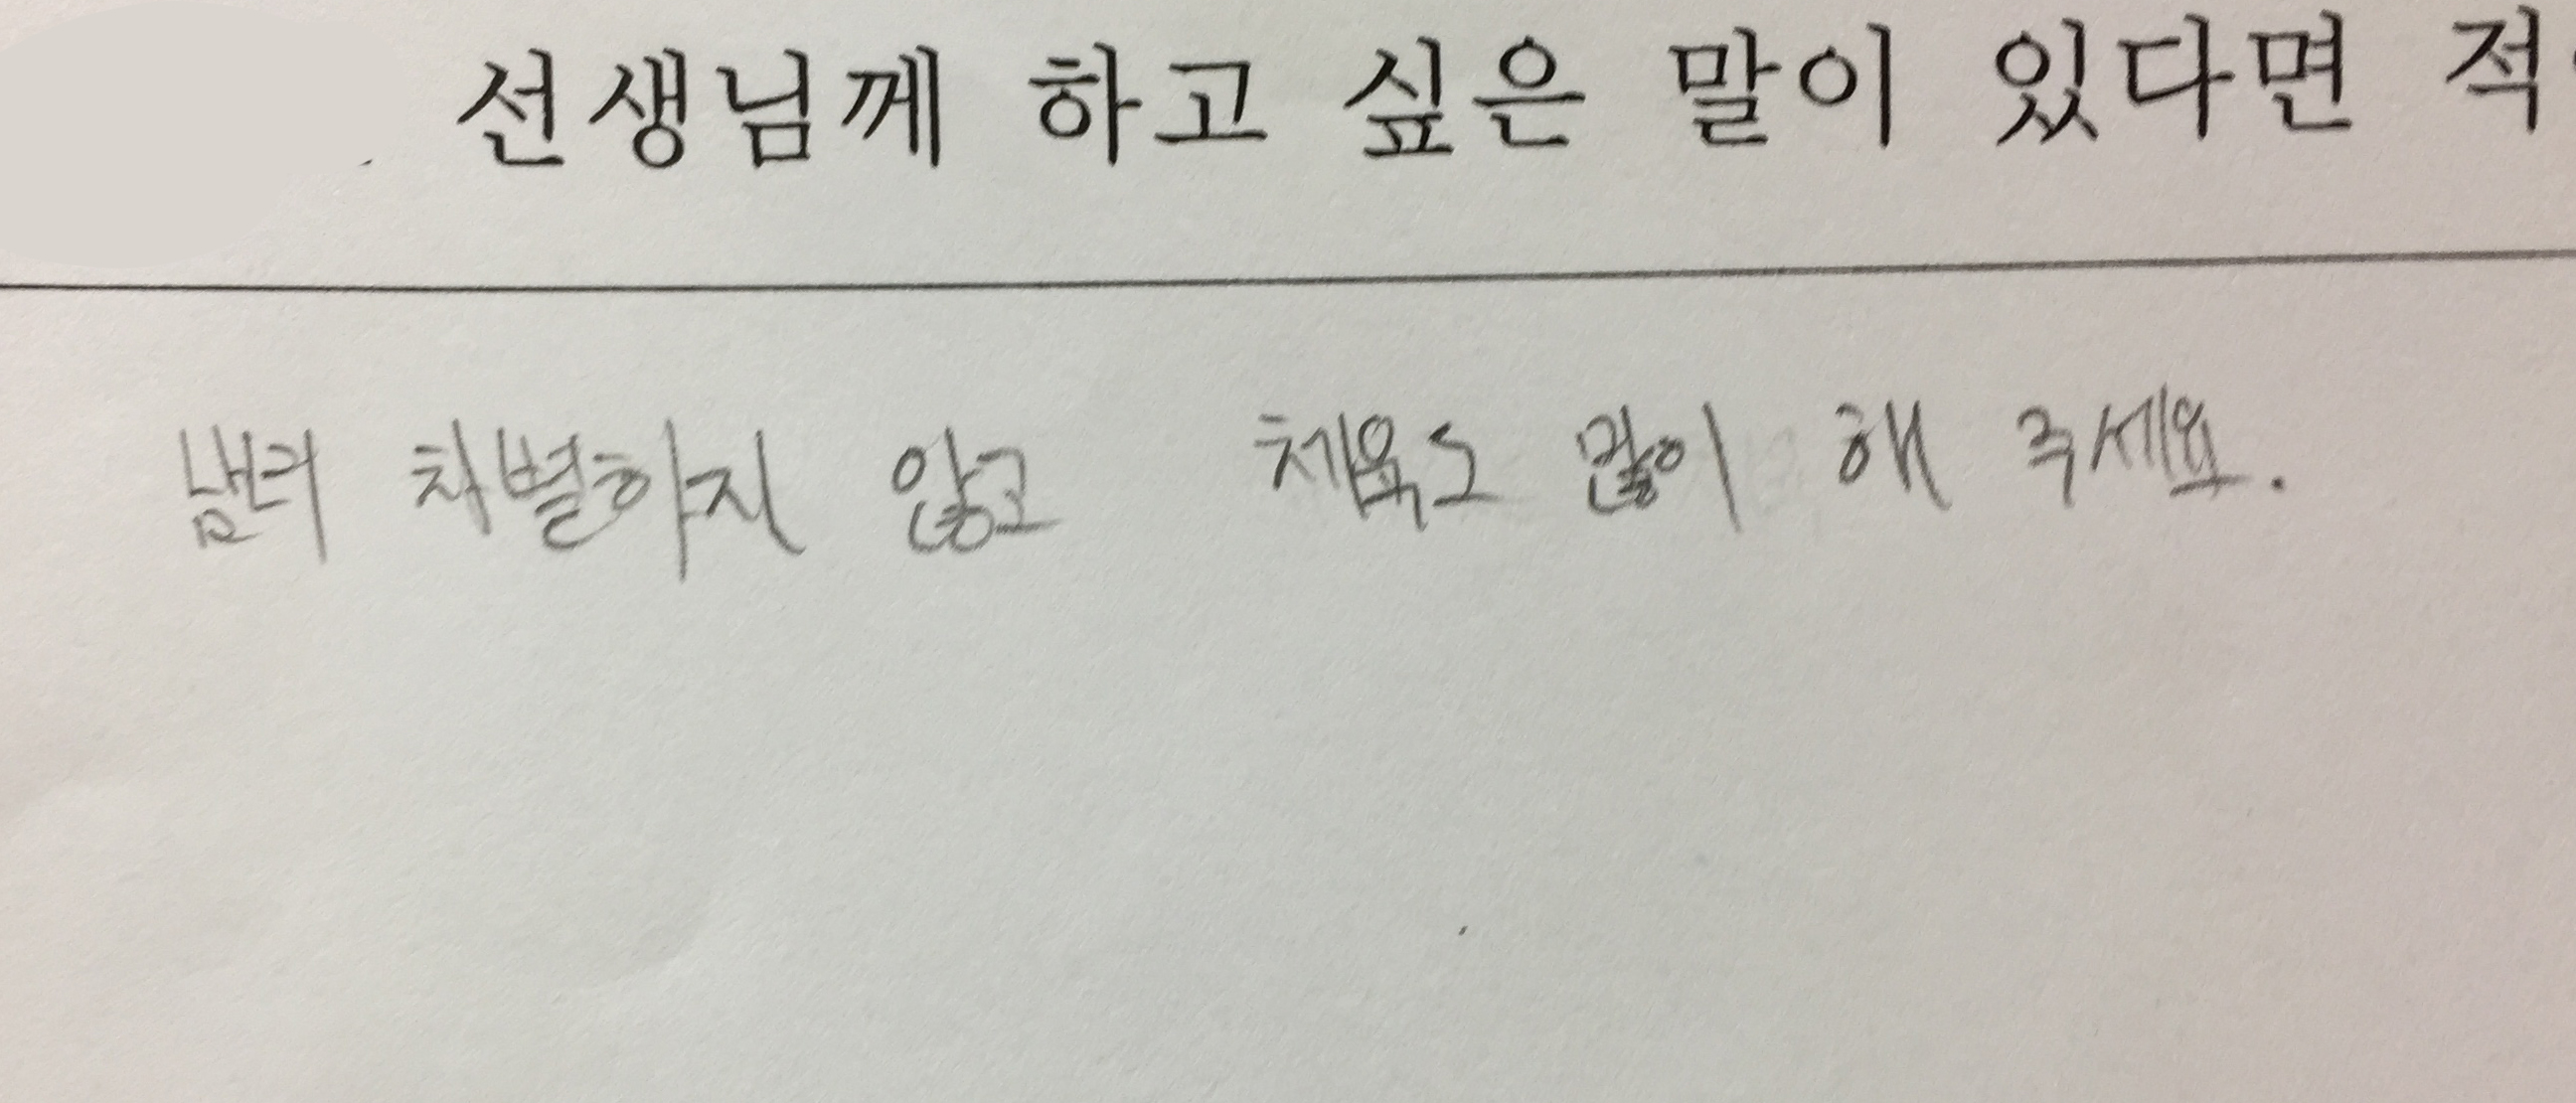 선생님께 하고 싶은 말이 있다면 적
차별하지 않고 체육도 많이 해 주세요.